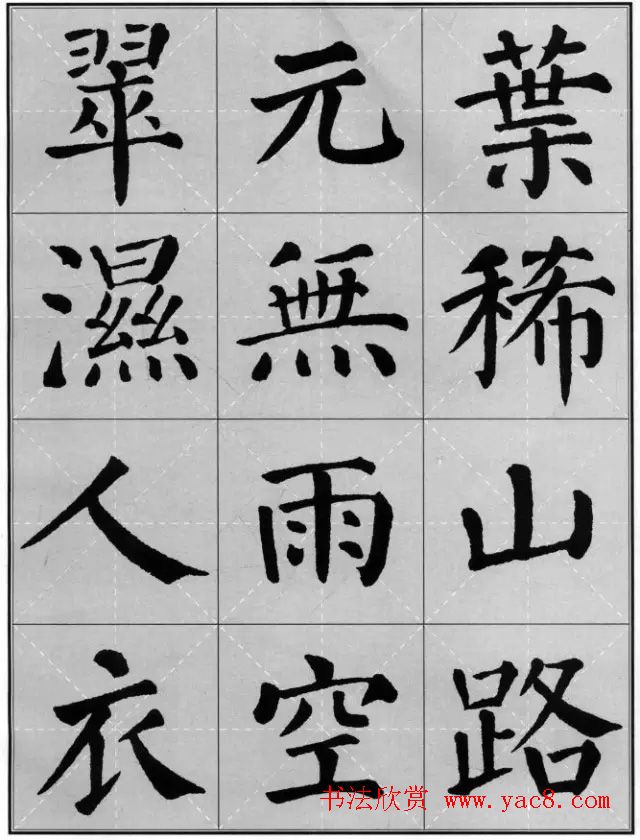 葉稀山路
元無雨空
翠濕人衣
书法欣赏 www.yac8.com